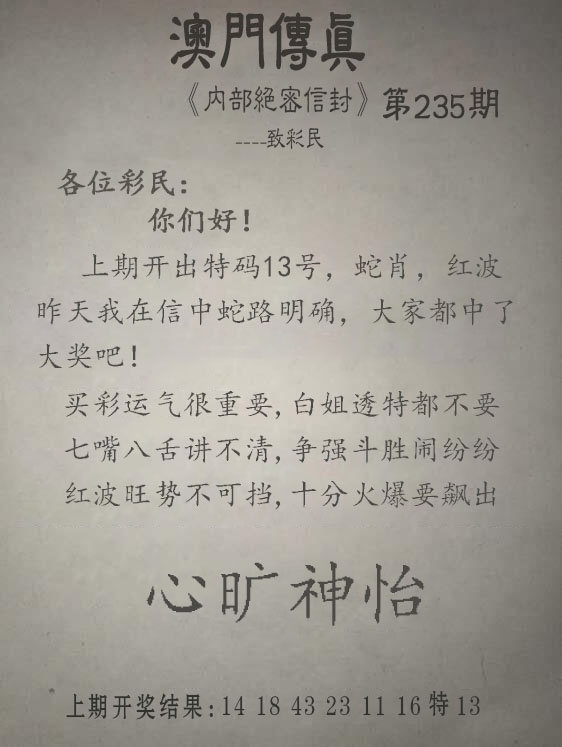 澳門傳眞
《内部絕密信封》第235期
----致彩民
各位彩民:
你们好!
上期开出特码13号，蛇肖，红波
昨天我在信中蛇路明确，大家都中了
大奖吧!
买彩运气很重要,白姐透特都不要
七嘴八舌讲不清,争强斗胜闹纷纷
红波旺势不可挡,十分火爆要飙出
心旷神怡
上期开奖结果:14 18 43 23 11 16 特 13